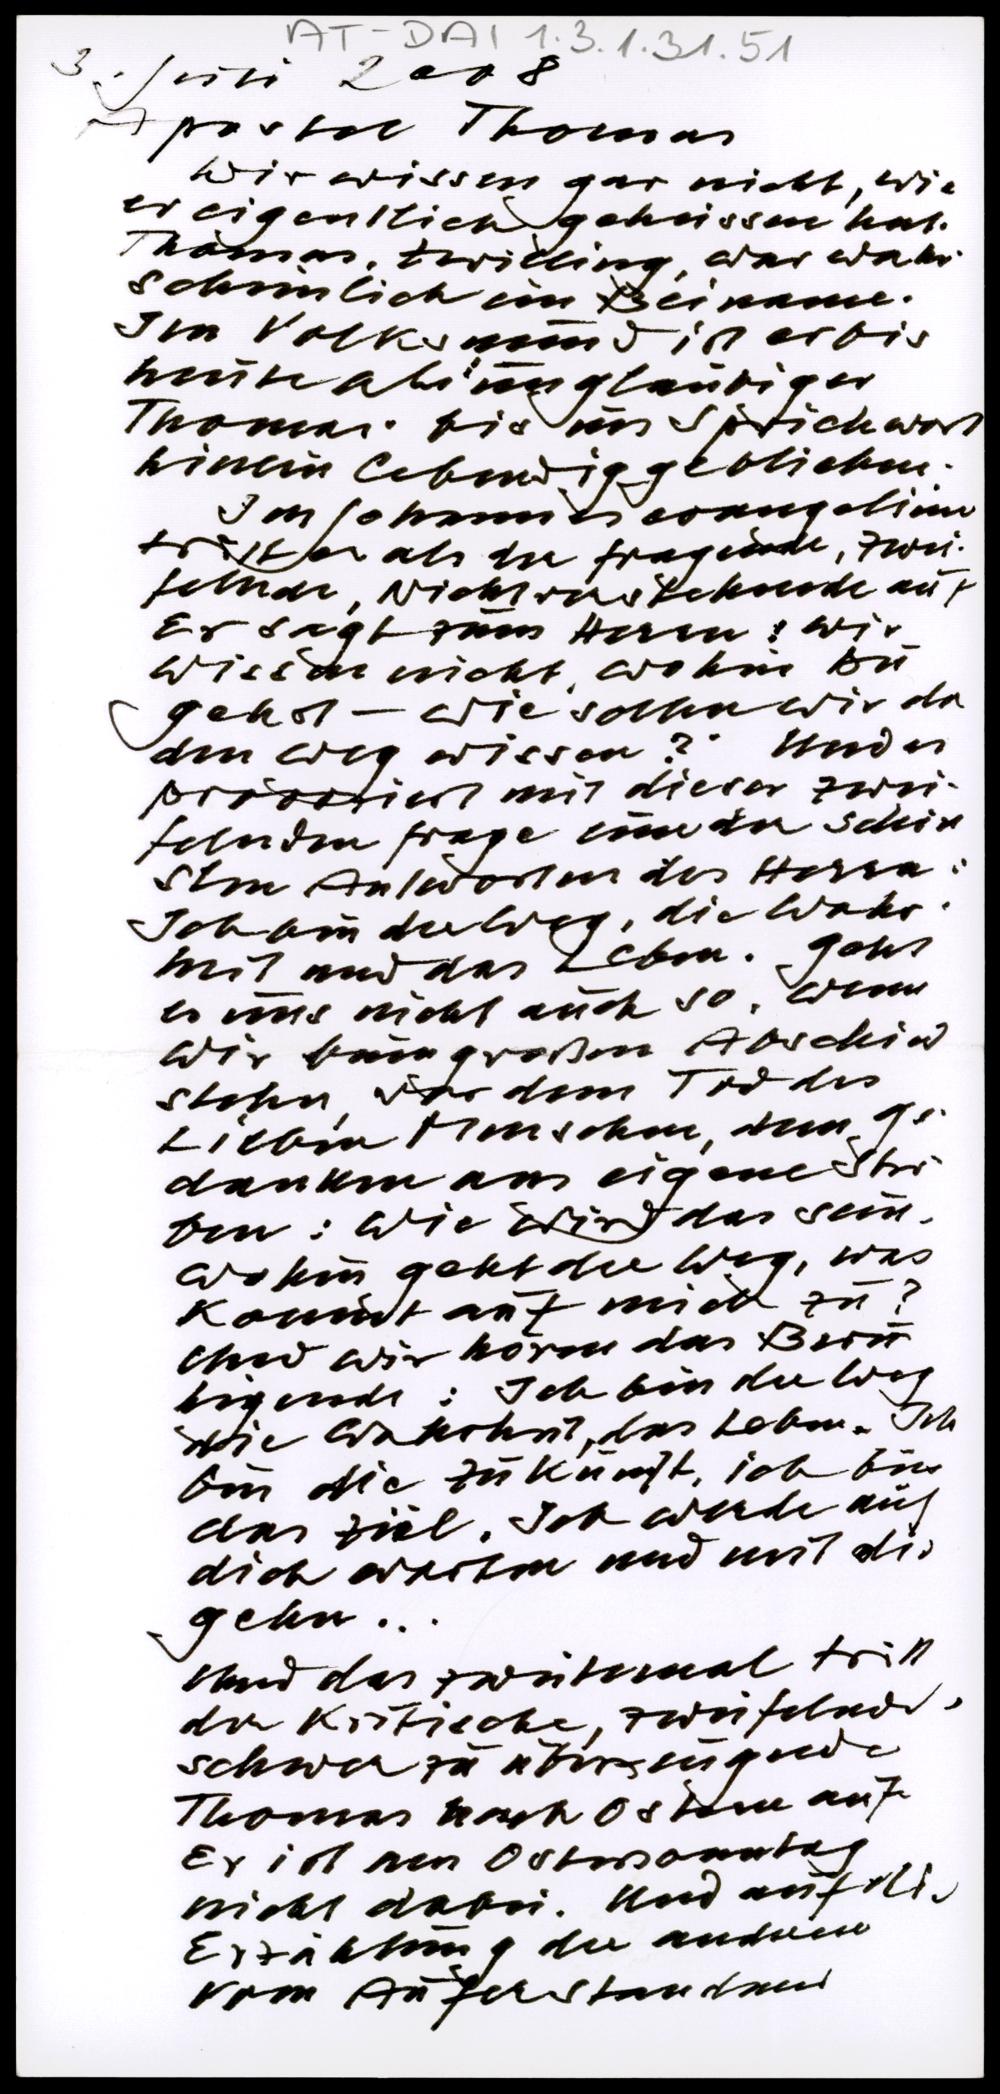 AT-DAI 1.3.1.31.51
3. Juli 2008
Apostel Thomas
Wir wissen gar nicht, wie
er eigentlich geheissen hat.
Thomas, Zwilling, war wahr-
scheinlich ein Beiname.
Im Volksmund ist er bis
heute als "ungläubiger
Thomas" bis ins Sprichwort
hinein lebendig geblieben.
Im Johannesevangelium
tritt er als der fragende, zwei-
felnde, Nichtverstehende auf
Er sagt zum Herrn: Wir
wissen nicht, wohin Du
gehst – wie sollen wir da
den Weg wissen?" Und er
provoziert mit dieser zwei-
felnden Frage eine der schön
sten Antworten des Herrn:
Ich bin der Weg, die Wahr-
heit und das Leben. Geht
es uns nicht auch so, wenn
wir beim großen Abschied
stehn, vor dem Tod des
Lieben Menschen, dem Ge-
danken ans eigene Ster
ben: Wie wird das sein.
Wohin geht der Weg, was
kommt auf mich zu?
Und wir hören das Beru
higende: Ich bin der Weg
die Wahrheit, das Leben. Ich
bin die Zukunft, ich bin
das Ziel. Ich werde auf
dich warten und mit dir
gehn...
Und das zweitemal tritt
der Kritische, zweifelnde,
schwer zu überzeugende
Thomas nach Ostern auf
Er ist am Ostersonntag
nicht dabei. Und auf die
Erzählung der anderen
vom Auferstandnen